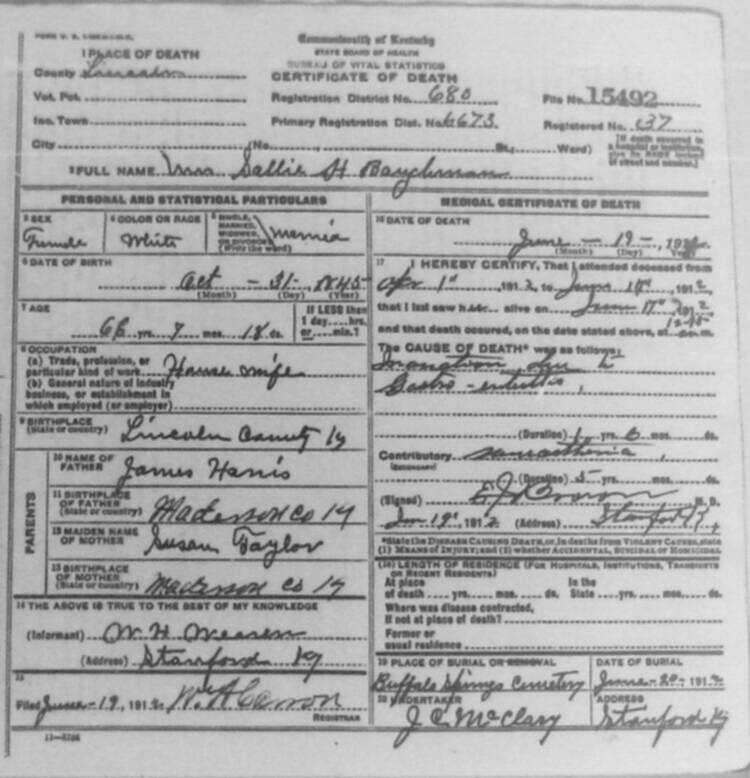 Commonwealth of Kentucky
STATE BOARD OF HEALTH
BUREAU OF VITAL STATISTICS
CERTIFICATE OF DEATH
1 PLACE OF DEATH
County Lincoln
Vot. Pct.
Inc. Town
City (No. St., Ward)
Registration District No. 680
Primary Registration Dist. No. 6673
File No. 15492
Registered No. 37
[If death occurred in a hospital or institution, give its NAME instead of street and number.]
2 FULL NAME Mrs Sallie H Baughman
PERSONAL AND STATISTICAL PARTICULARS
3 SEX
Female
4 COLOR OR RACE
White
5 SINGLE, MARRIED, WIDOWED, OR DIVORCED (Write the word)
Married
6 DATE OF BIRTH
Oct - 31 - 1845
(Month) (Day) (Year)
7 AGE
66 yrs. 7 mos. 18 ds.
If LESS than 1 day....hrs. or....min.?
8 OCCUPATION
(a) Trade, profession, or
particular kind of work House wife
(b) General nature of industry
business, or establishment in
which employed (or employer)
9 BIRTHPLACE
(State or country) Lincoln County Ky
PARENTS
10 NAME OF FATHER James Harris
11 BIRTHPLACE OF FATHER
(State or country) Maderson Co Ky
12 MAIDEN NAME OF MOTHER Susan Taylor
13 BIRTHPLACE OF MOTHER
(State or country) Maderson Co Ky
14 THE ABOVE IS TRUE TO THE BEST OF MY KNOWLEDGE
(Informant) W. H.
(Address) Stanford Ky
15
Filed June - 19, 1912
REGISTRAR
MEDICAL CERTIFICATE OF DEATH
16 DATE OF DEATH
June - 19 -, 1912
(Month) (Day) (Year)
17 I HEREBY CERTIFY, That I attended deceased from
Apr 1st, 1912 to June, 1912
that I last saw her alive on June, 1912
and that death occured, on the date stated above, at m.
The CAUSE OF DEATH* was as follows:
Gastro-enteritis,
(Duration) 1 yrs. 6 mos. ds.
Contributory
(SECONDARY)
(Duration) 5 yrs. mos. ds.
(Signed) M. D.
19", 1912 (Address) Stanford Ky
*State the DISEASE CAUSING DEATH, or, in deaths from VIOLENT CAUSES, state
(1) MEANS OF INJURY; and (2) whether ACCIDENTAL, SUICIDAL OR HOMICIDAL
LENGTH OF RESIDENCE (FOR HOSPITALS, INSTITUTIONS, TRANSIENTS
OR RECENT RESIDENTS)
At place In the
of death yrs. mos. ds. State yrs. mos. ds.
Where was disease contracted,
if not at place of death?
Former or
usual residence
19 PLACE OF BURIAL OR REMOVAL
Buffalo Springs Cemetery
DATE OF BURIAL
June - 20 - 1912
20 UNDERTAKER
J C McClary
ADDRESS
Stanford Ky